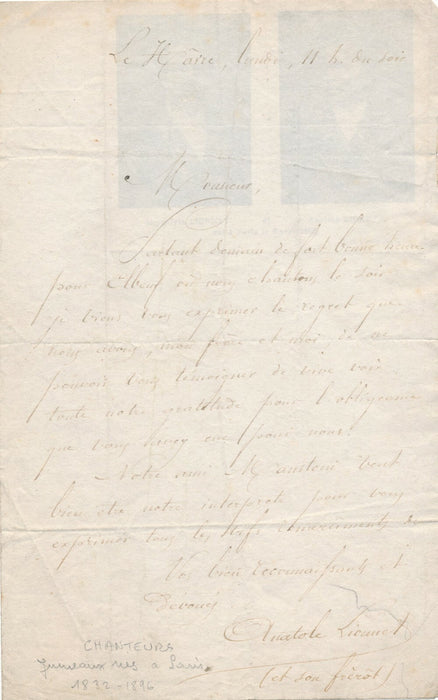 Le Hâvre, lundi, 11 h. du soir
Monsieur,
Partant demain de fort bonne heure
pour Elbeuf où nous chantons le soir
je viens vous exprimer le regret que
nous avons, mon frère et moi, de ne
pouvoir vous témoigner de vive voix
toute notre gratitude pour l'obligeance
que vous avez eue pour nous.
Notre ami M veut
bien être notre interprète pour vous
exprimer tous les vifs remerciments de
Vos bien reconnaissants et
Dévoués
Anatole Lionnet
(et son frérot)
CHANTEURS
Jumeaux nés à Paris
1832-1896